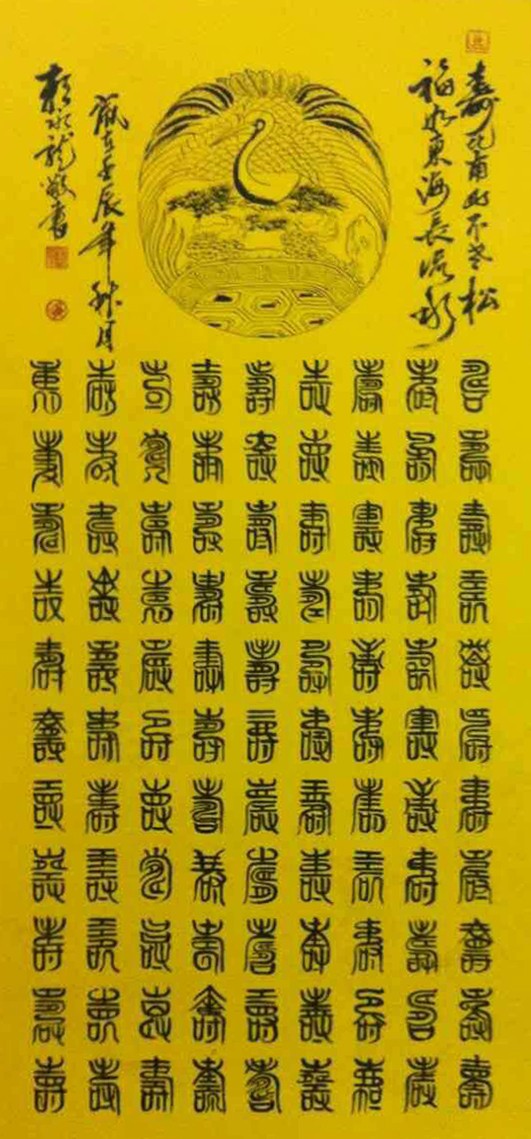 壽比南山不老松
福如東海長流水
歲在壬辰年秋月
龍敬書
壽壽壽壽壽壽壽壽壽壽壽
壽壽壽壽壽壽壽壽壽壽壽
壽壽壽壽壽壽壽壽壽壽壽
壽壽壽壽壽壽壽壽壽壽壽
壽壽壽壽壽壽壽壽壽壽壽
壽壽壽壽壽壽壽壽壽壽壽
壽壽壽壽壽壽壽壽壽壽壽
壽壽壽壽壽壽壽壽壽壽壽
壽壽壽壽壽壽壽壽壽壽壽